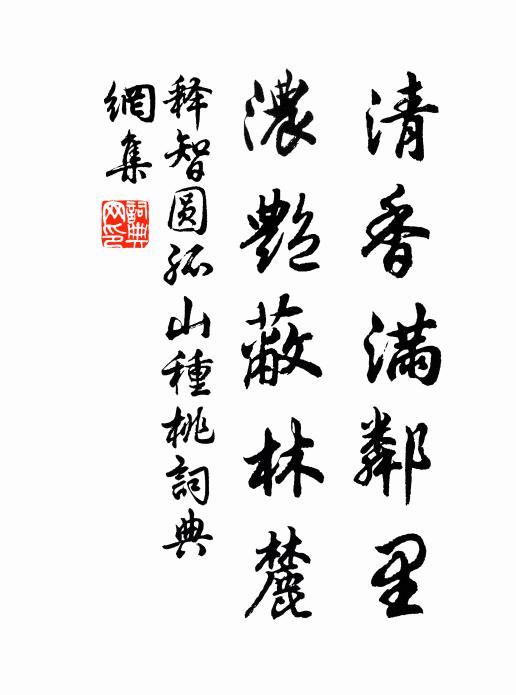 清香满鄰里
濃艷蔽林麓
释智圆孤山種桃詞典
網集
詞典網印